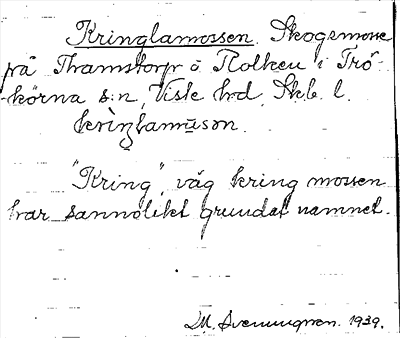 Kringlamossen. Skogsmosse
på Thamstorp o Rolken i Trö-
-körna s:n, Viste hrd, Skb. l.
kriŋlamūson.
"Kring", väg kring mossen
har sannolikt grundat namnet.
M. Svenungson. 1939.